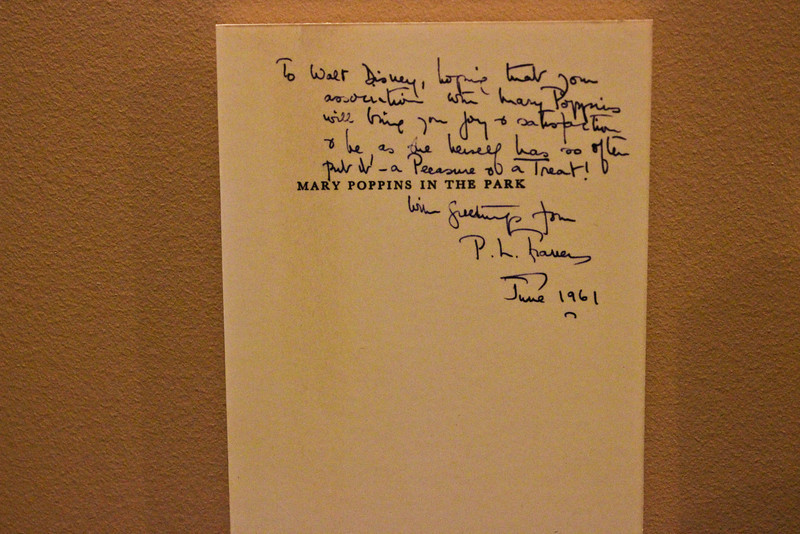 To Walt Disney, hoping that your
association with Mary Poppins
will bring you joy & satisfaction
& be as she herself has so often
put it - a Pleasure & a Treat!
MARY POPPINS IN THE PARK
With greetings from
P. L. Travers
June 1961